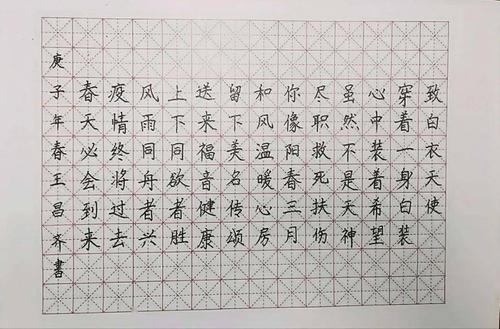 致白衣天使
穿着一身白装
心中装着希望
虽然不是天神
尽职救死扶伤
你像阳春三月
和风温暖心房
留下美名传颂
送来福音健康
上下同欲者胜
风雨同舟者兴
疫情终将过去
春天必会到来
庚子年春王昌齐書